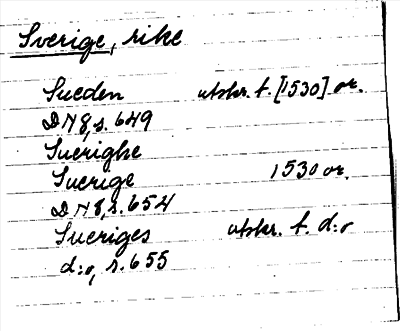 Sverige, rike
Sueden utskr. f. [1530] or.
DN 8, s. 649
Suerighe
Suerige 1530 or.
DN 8, s. 654
Sueriges utskr. f. d:o
d:o, s. 655